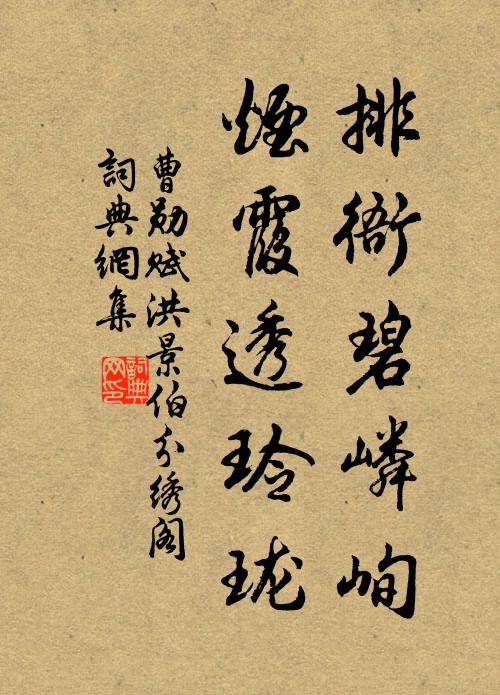 排衙碧嶙峋
煙霞透玲瓏
曹勋赋洪景伯分绣阁
詞典網集
詞典网印